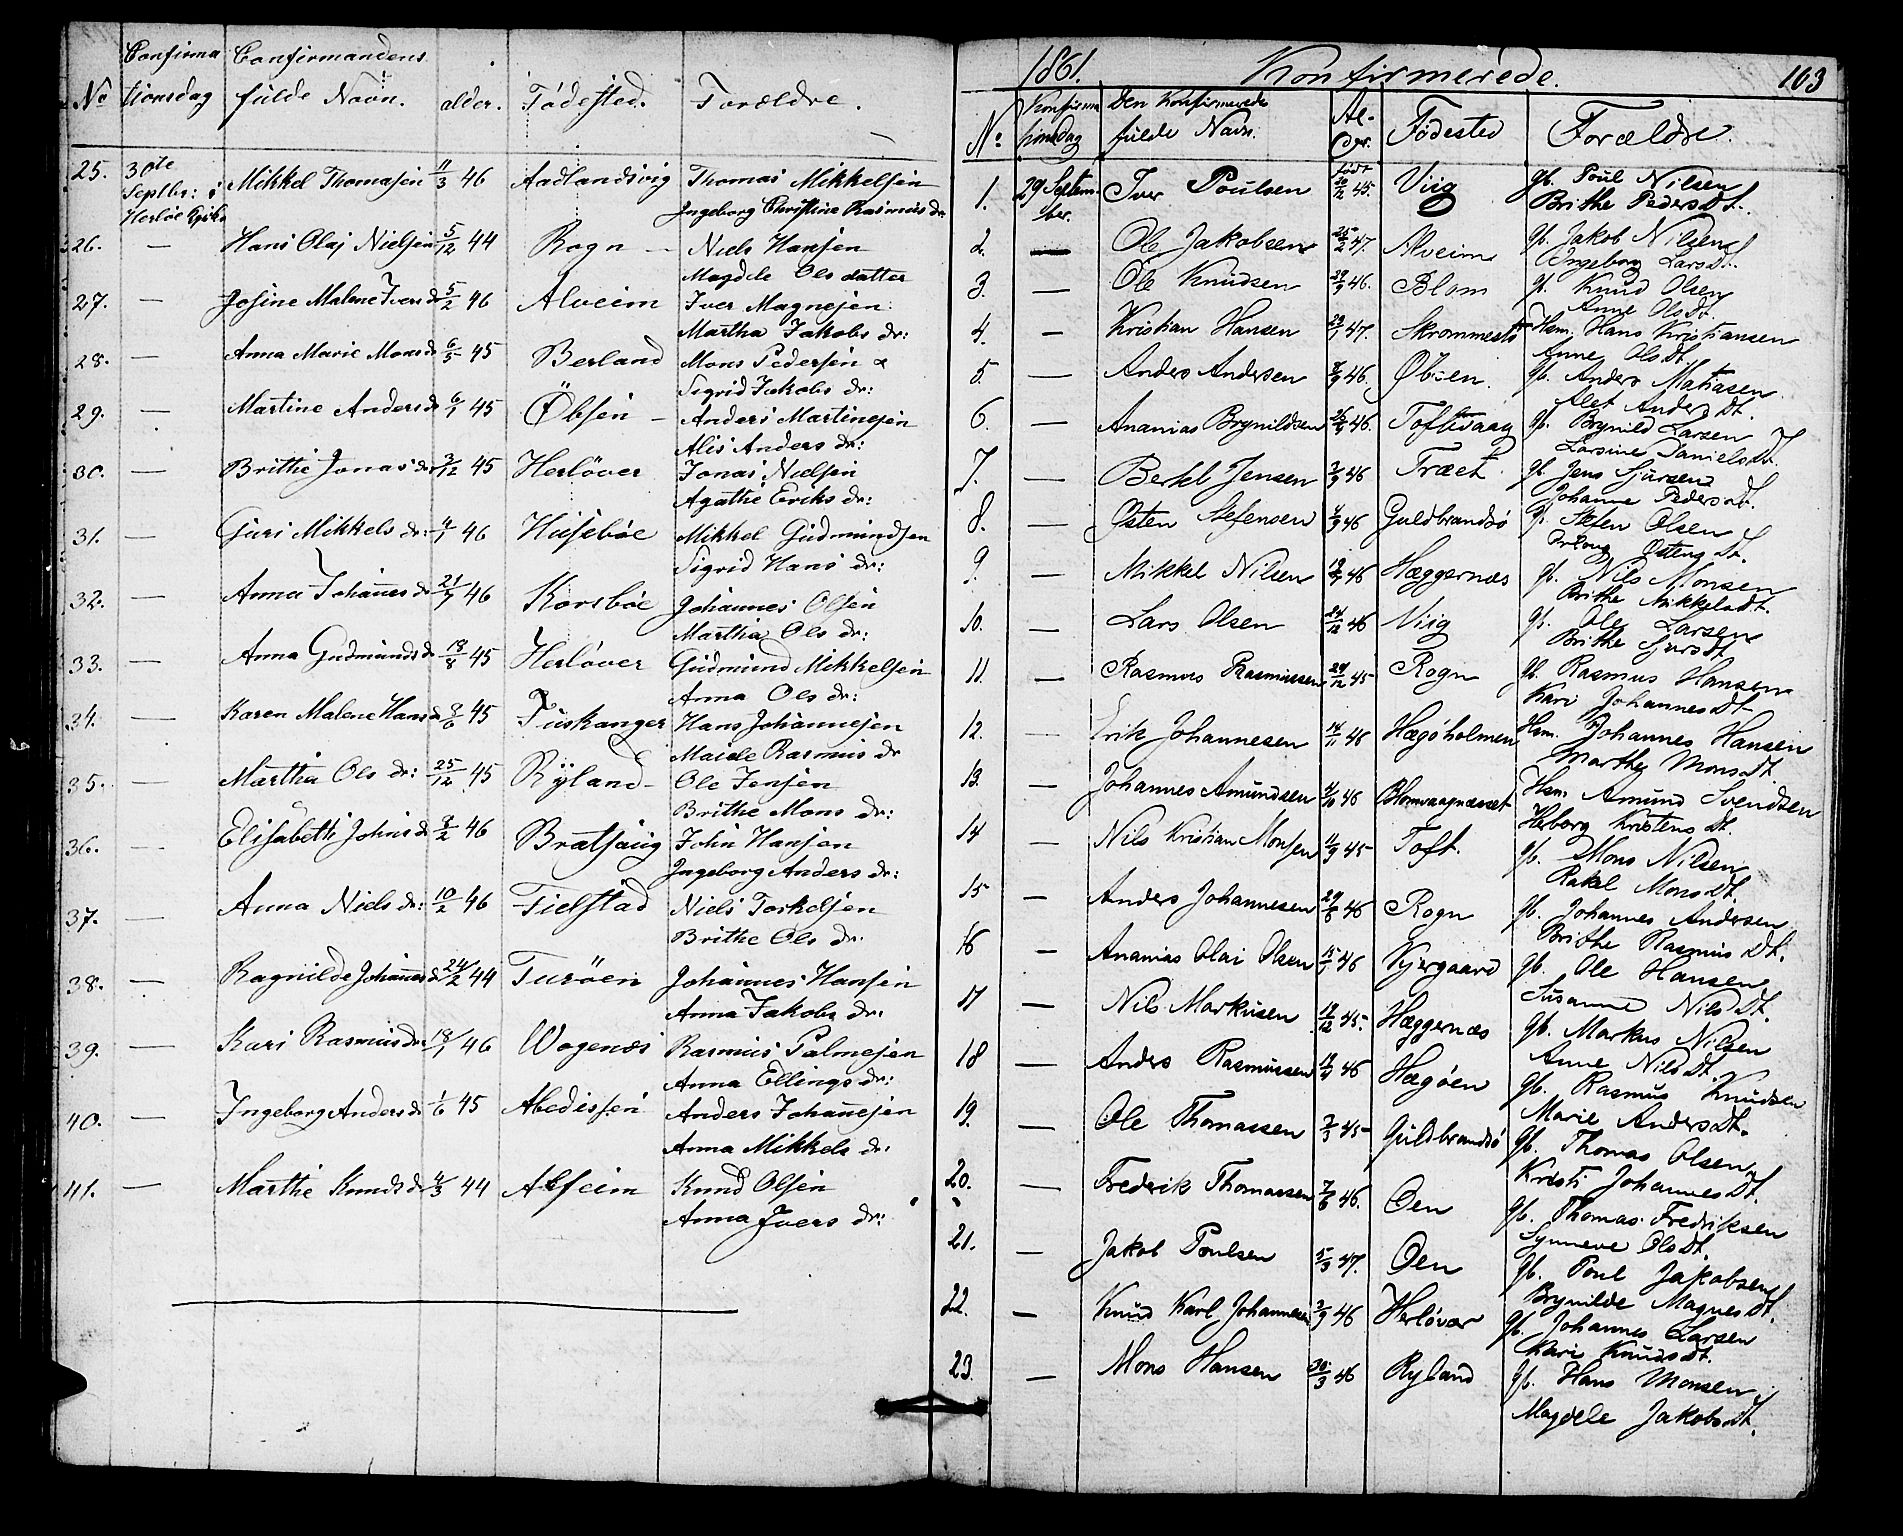 No Confirmationsdag Confirmandens fulde Navn. alder. Födested. Forældre.
25. 30te Septbr: i Herlöe Mikkel Thomasen 11/3 46 Aadlandsvig Thomas Mikkelsen
Ingeborg Christine Rasmus dr
26. — Hans Olaj Nielsen 5/12 44 Rogn — Niels Hansen
Magdele Ols datter
27. — Josine Malene Ivers dr 5/2 46 Alveim Iver Magnesen
Martha Jakobs dr:
28. — Anna Marie Mons dr 6/5 45 Berland Mons Pedersen &
Sigrid Jakobs dr:
29. — Martine Anders dr 6/1 45 Öbsen — Anders Martinesen
Alis Anders dr:
30. — Brithe Jonas dr 3/12 45 Herlöver Jonas Nielsen
Agathe Eriks dr:
31. — Guri Mikkels dr: 4/1 46 Huseböe Mikkel Gudmundsen
Sigrid Hans dr:
32. — Anna Johannes dr 21/7 46 Korsböe Johannes Olsen
Martha Ols dr:
33. — Anna Gudmunds dr 18/8 45 Herlöver Gudmund Mikkelsen
Anna Ols dr:
34. — Karen Malene Hans dr 9/6 45 Tuskanger Hans Johannesen
Rasmus dr
35. — Martha Ols dr: 25/12 45 Ryland — Ole Jensen
Brithe Mons dr:
36. — Elisabeth Johns dr 8/2 46 John Hansen
Ingeborg Anders dr:
37. — Anna Niels dr: 10/2 46 Fielstad Niels Torkelsen
Brithe Ols dr.
38. — Ragnilde Johannes dr 24/2 44 Turöen Johannes Hansen
Anna Jakobs dr:
39. — Kari Rasmus dr 18/1 46 Wogenæs Rasmus Palmesen
Anna Ellings dr:
40. — Ingeborg Anders dr 1/6 45 Anders Johannesen
Anna Mikkels dr:
41. — Marthe Knuds dr 4/3 44 Alfeim Knud Olsen
Anna Ivers dr:
1861. Konfirmerede. 103
No Konfirmationsdag Den Konfirmerede fulde Navn. Al- der. Fødested Forældre.
1. 29 September. Iver Poulsen født 26/12 45. Viig gb. Poul Nilsen
Brithe Peders Dt.
2. — Ole Jakobsen 25/2 47. Alveim gb. Jakob Nilsen
Ingeborg Lars Dt.
3. — Ole Knudsen 29/9 46. Blom gb. Knud Olsen
Anne Ols Dt.
4. — Kristian Hansen 29/1 47. Hsm. Hans Kristiansen
Anne Ols Dt.
5. — Anders Andersen 8/9 46. gb. Anders Matiasen
Alet Anders Dt.
6. — Ananias Brynildsen 26/8 46. Toftevaag gb. Brynild Larsen
Larsine Daniels Dt.
7. — Berkl Jensen 3/9 46 Træet. gb. Jens Sjursen
Johanne Peders Dt.
8. — Østen Stefensen 4/9 46 Guldbrandsø gb. Stefen Olsen
Østens Dt.
9. — Mikkel Nilsen 18/9 46 Hæggernæs gb. Nils Monsen
Brithe Mikkels Dt.
10. — Lars Olsen 24/12 46 Viig gb. Ole Larsen
Brithe Sjurs Dt.
11. — Rasmus Rasmussen 24/12 45 Rogn gb. Rasmus Hansen
Kari Johannes Dt.
12. — Erik Johannesen 14/11 46 Hægøholmen Hsm. Johannes Hansen
Marthe Mons Dt.
13. — Johannes Amundsen 4/10 46 Blomvaagnæsset Hsm. Amund Svendsen
Herborg Kristens Dt.
14 — Nils Kristian Monsen 11/9 45 Toft. gb. Mons Nilsen
Rakel Mons Dt.
15 — Anders Johannesen 29/6 46 Rogn gb. Johannes Andersen
Brithe Rasmus Dt.
16 — Ananias Olai Olsen 11/1 46 Kjergaard gb. Ole Hansen
Susanne Nils Dt.
17 — Nils Markusen 18/12 45. Hæggernæs gb. Markus Nilsen
Anne Nils Dt.
18 — Anders Rasmussen 19/4 46 Hægøen gb. Rasmus Knudsen
Marie Anders Dt.
19. — Ole Thomassen 2/3 45 Guldbrandsø gb. Thomas Olsen
Kristi Johannes Dt.
20. — Fredrik Thomassen 7/6 46. Oen gb. Thomas Fredriksen
Synneve Ols Dt.
21. — Jakob Poulsen 5/3 47. Oen gb. Poul Jakobsen
Brynilde Magnes Dt.
22. — Knud Karl Johannesen 3/9 46 Herløvær gb. Johannes Larsen
Kari Knuds Dt.
23. — Mons Hansen 30/3 46 Ryland gb. Hans Monsen
Magdele Jakobs Dt.